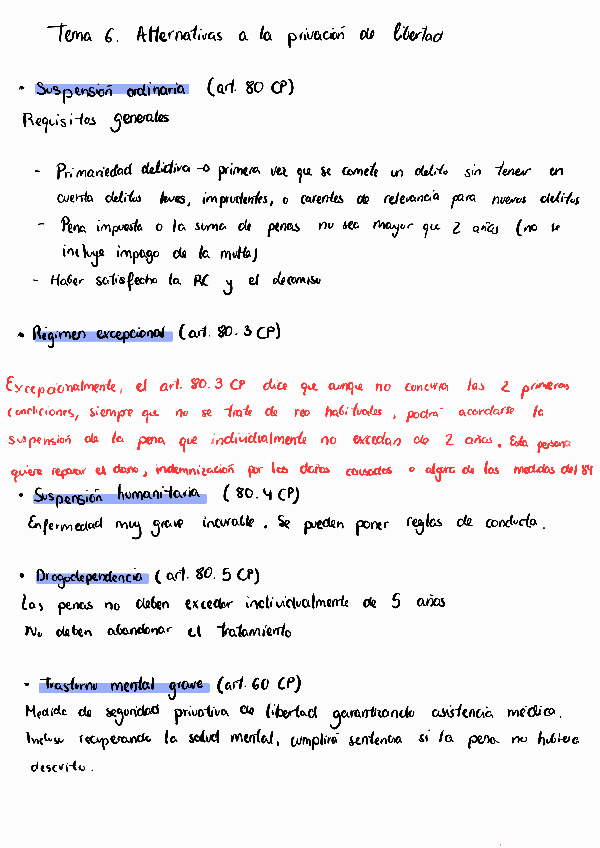 Tema 6. Alternativas a la privación de libertad
• Suspensión ordinaria (art. 80 CP)
Requisitos generales
- Primariedad delictiva → primera vez que se comete un delito sin tener en
cuenta delitos leves, imprudentes, o carentes de relevancia para nuevos delitos
- Pena impuesta o la suma de penas no sea mayor que 2 años (no se
incluye impago de la multa)
- Haber satisfecho la RC y el decomiso
• Régimen excepcional (art. 80.3 CP)
Excepcionalmente, el art. 80.3 CP dice que aunque no concurra las 2 primeras
condiciones, siempre que no se trate de reo habituales, podrá acordarse la
suspensión de la pena que individualmente no excedan de 2 años. Esta persona
quiera reparar el daño, indemnización por los daños causados o alguna de las medidas del 84
• Suspensión humanitaria (80.4 CP)
Enfermedad muy grave incurable. Se pueden poner reglas de conducta.
• Drogodependencia (art. 80.5 CP)
Las penas no deben exceder individualmente de 5 años
No deben abandonar el tratamiento
• Trastorno mental grave (art. 60 CP)
Medida de seguridad privativa de libertad garantizando asistencia médica.
Incluso recuperando la salud mental, cumplirá sentencia si la pena no hubiera
descrito.